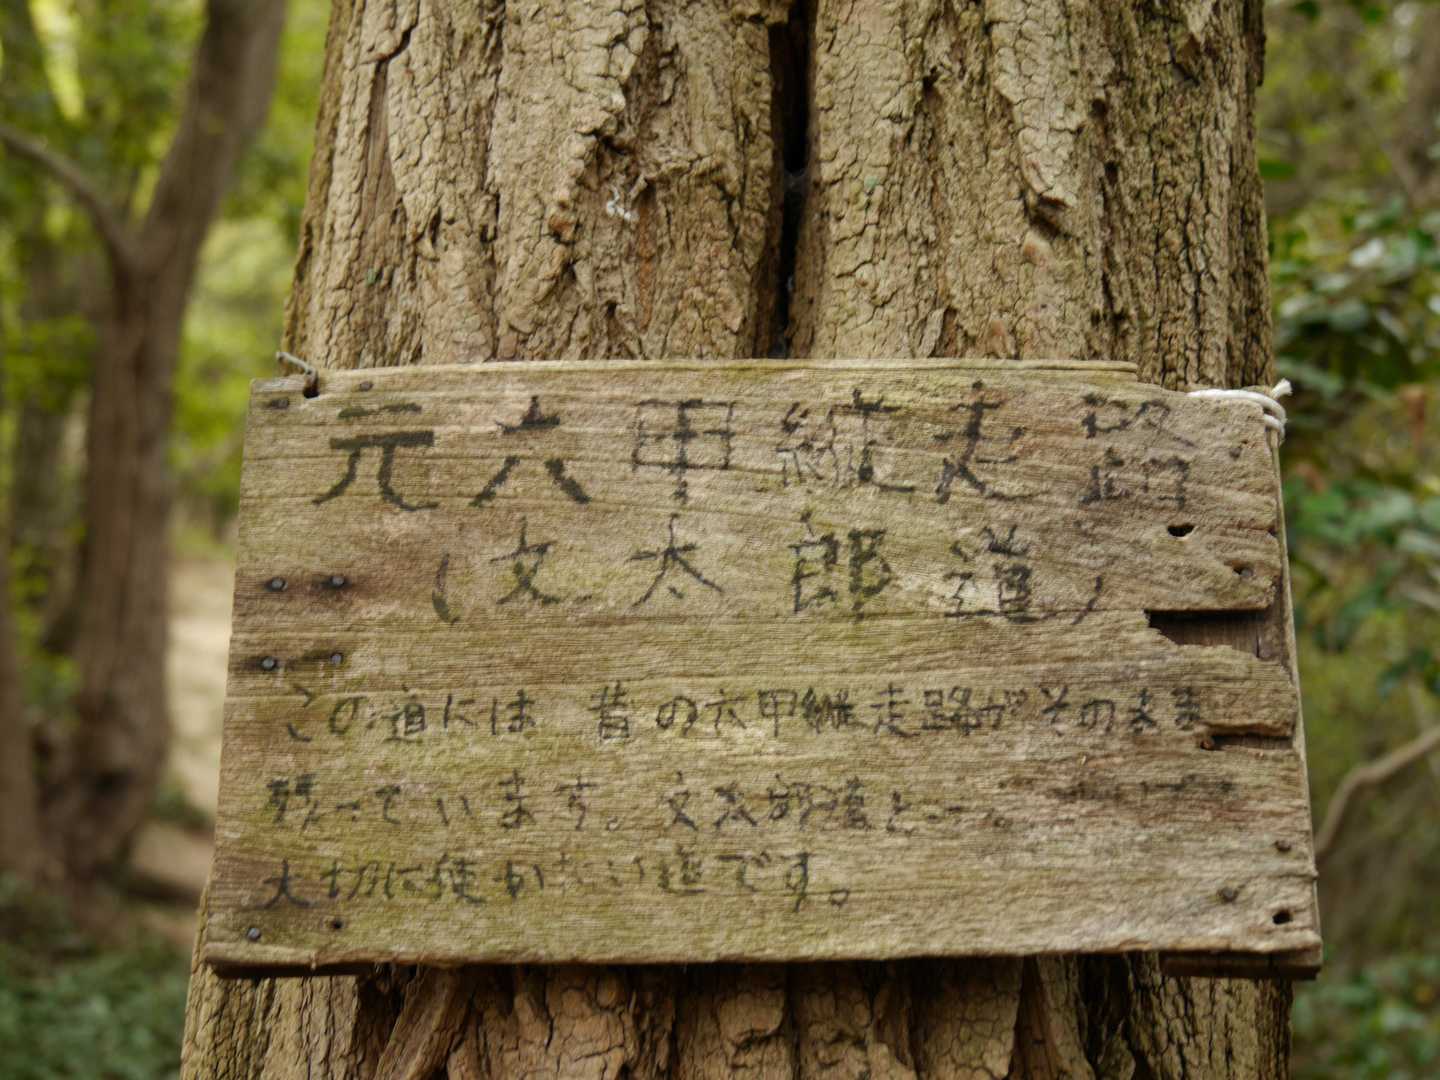 元六甲縦走路
(文太郎道)
この道には 昔の六甲縦走路がそのまま
残っています。文太郎道と
大切に使いたい道です。